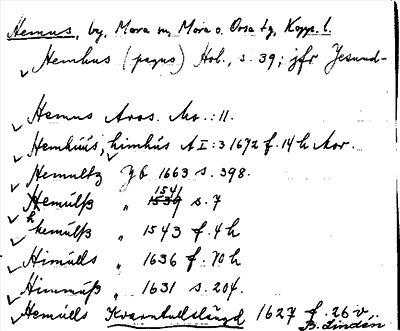 Hemus, by, Mora sn, Mora o. Orsa tg, Kopp. l.
Hemhus (pagus) Hol., s. 39; jfr Jesund-
Hemus Aros. Mo.: 11.
Hemhuus, himhus A I:3 1672 f. 14 h Aor.
Hemultz Jb 1663 s. 398.
Hemulß " 1541 s. 7
hemulß " 1543 f. 4 h
Himulls " 1636 f. 70 h
Himmuß " 1631 s. 204.
Hemulls Kvarntullslängd 1627 f. 26 v.
B. Lindén